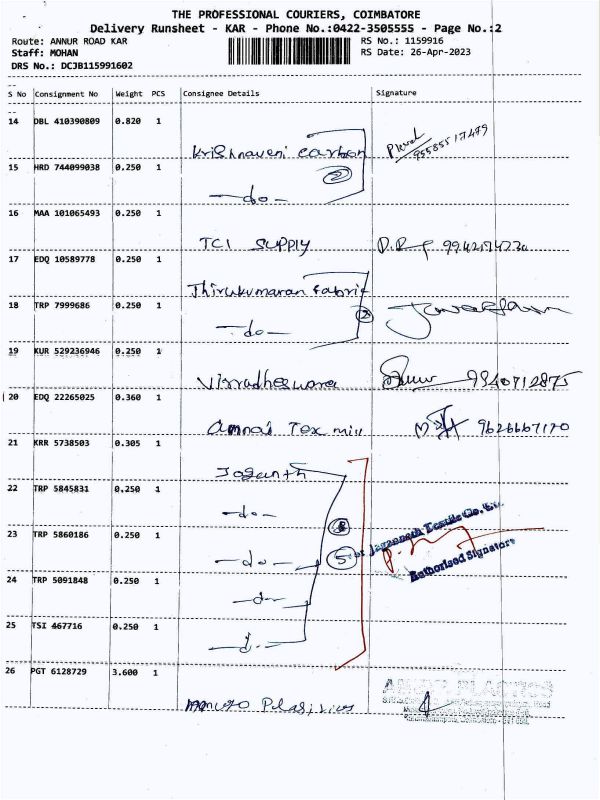 THE PROFESSIONAL COURIERS, COIMBATORE
Delivery Runsheet - KAR - Phone No.:0422-3505555 - Page No.:2
Route: ANNUR ROAD KAR RS No.: 1159916
Staff: MOHAN RS Date: 26-Apr-2023
DRS No.: DCJB115991602
S No Consignment No Weight PCS Consignee Details Signature
14 DBL 410390809 0.820 1
Krishnaveni Carbon 9585517479
15 HRD 744099038 0.250 1 2
-do-
16 MAA 101065493 0.250 1
TCI SUPPLY
17 EDQ 10589778 0.250 1
Thirukumaran fabric
18 TRP 7999686 0.250 1 2
-do-
19 KUR 529236946 0.250 1
9840712875
20 EDQ 22265025 0.360 1
Annai Tex mill 9626667170
21 KRR 5738503 0.305 1
22 TRP 5845831 0.250 1
-do-
23 TRP 5860186 0.250 1
-do- 5 for Jagannath Textile Co.
Authorised Signatory
24 TRP 5091848 0.250 1
25 TSI 467716 0.250 1
26 PGT 6128729 3.600 1
PLASTICS